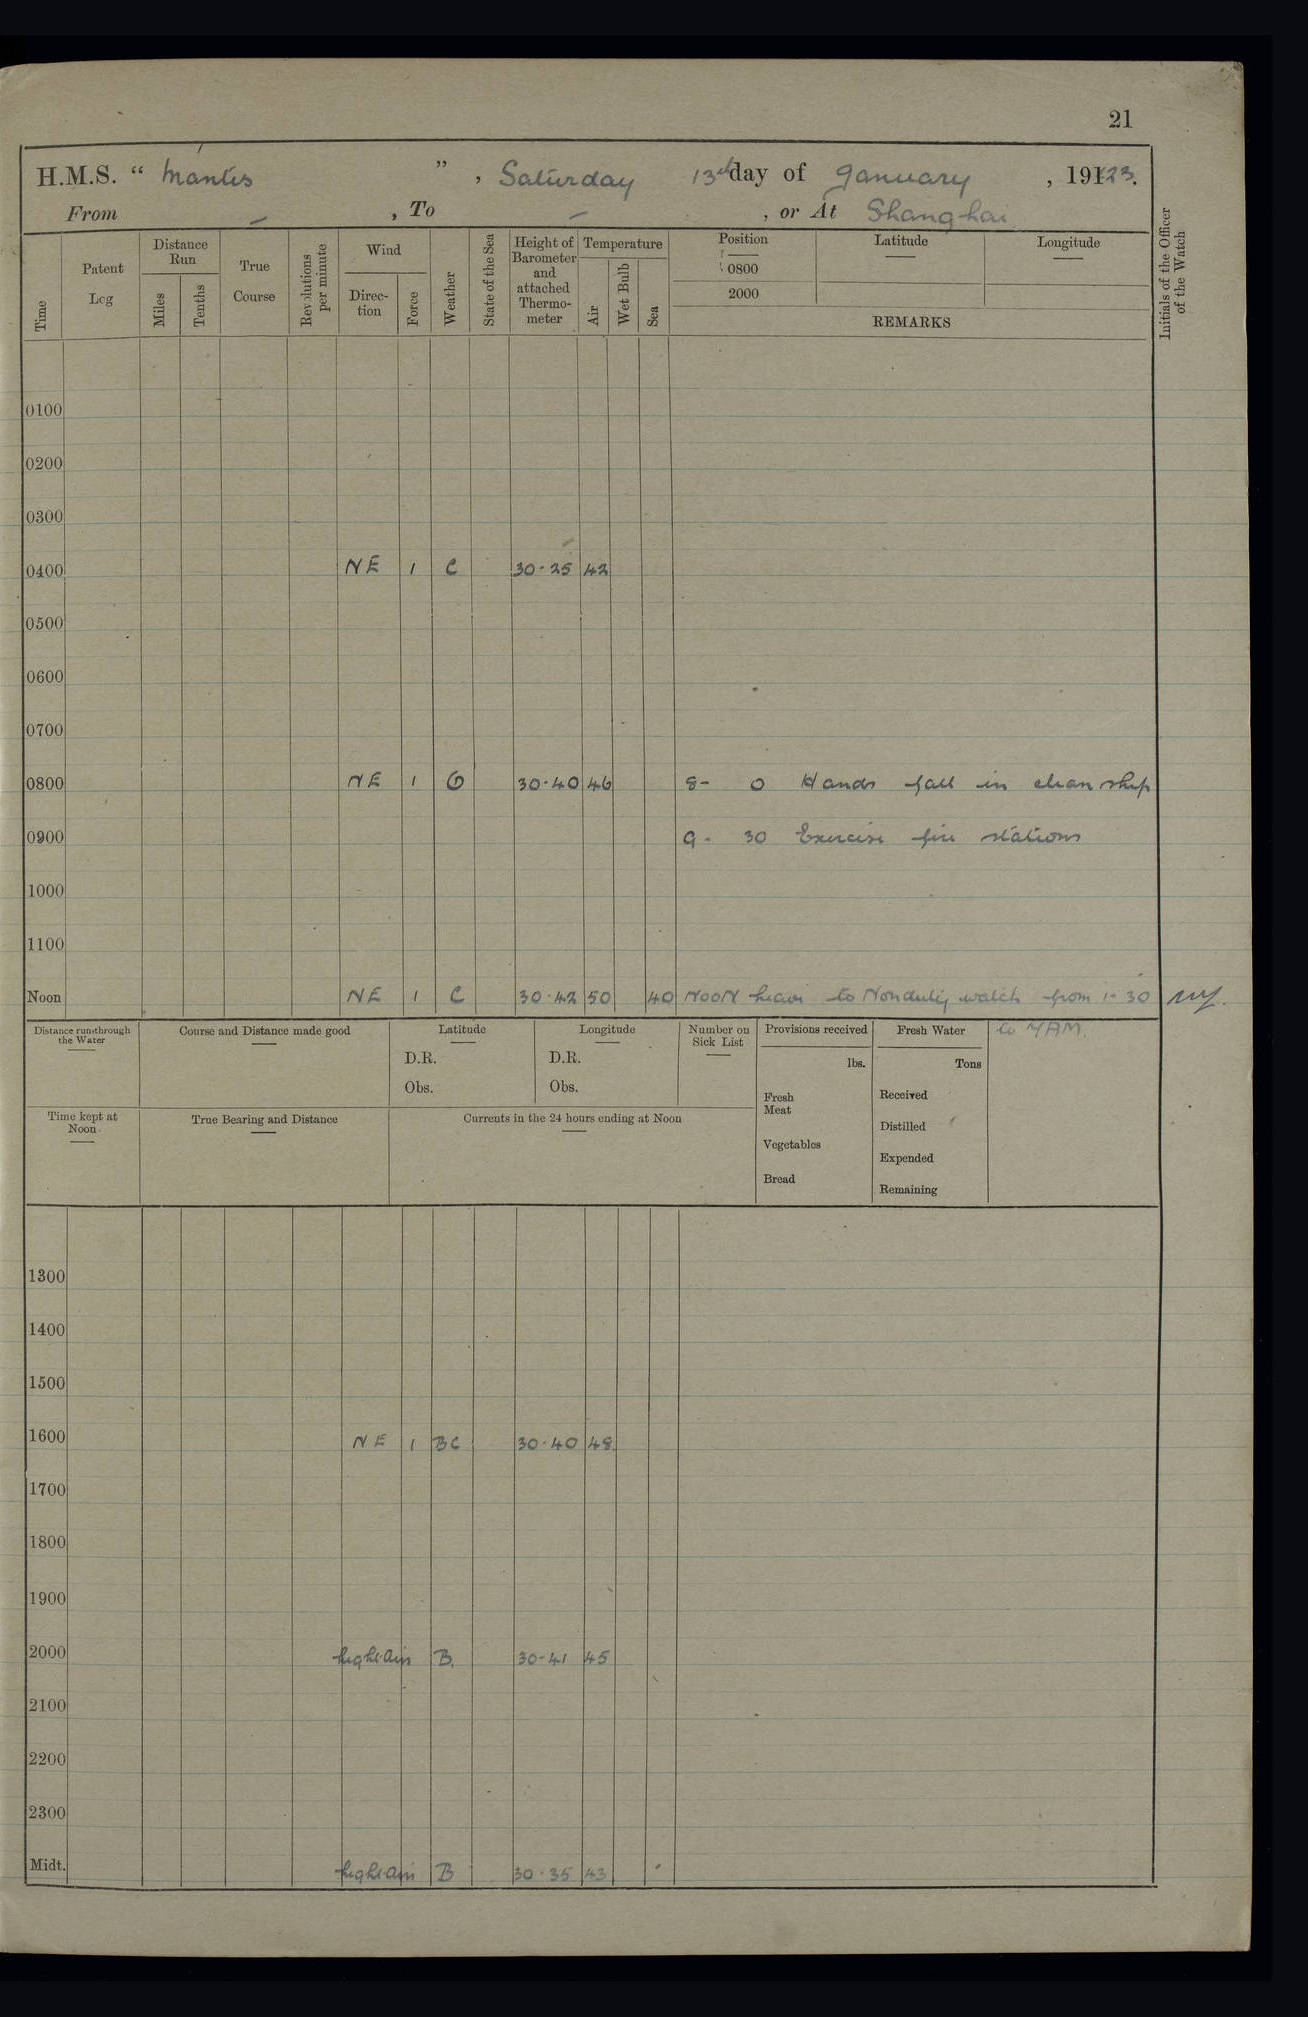 21
H.M.S. “ Mantis ”, Saturday 13th day of January, 1923.
From – , To – , or At Shanghai
Time
Patent Log
Distance Run
Miles
Tenths
True Course
Revolutions per minute
Wind
Direction
Force
Weather
State of the Sea
Height of Barometer and attached Thermometer
Temperature
Air
Wet Bulb
Sea
Position
0800
2000
Latitude
Longitude
REMARKS
Initials of the Officer of the Watch
0100
0200
0300
0400 NE 1 C 30·25 42
0500
0600
0700
0800 NE 1 O 30·40 46 8- 0 Hands fall in clean ship
0900 9- 30 Exercise fire stations
1000
1100
Noon NE 1 C 30·42 50 40 Noon leave to Nonduty watch from 1-30
to 7AM.
Distance run through the Water
Course and Distance made good
Latitude
D.R.
Obs.
Longitude
D.R.
Obs.
Number on Sick List
Provisions received
lbs.
Fresh Meat
Vegetables
Bread
Fresh Water
Tons
Received
Distilled
Expended
Remaining
Time kept at Noon
True Bearing and Distance
Currents in the 24 hours ending at Noon
1300
1400
1500
1600 NE 1 BC 30·40 48
1700
1800
1900
2000 light airs B. 30-41 45
2100
2200
2300
Midt. light airs B 30·35 43